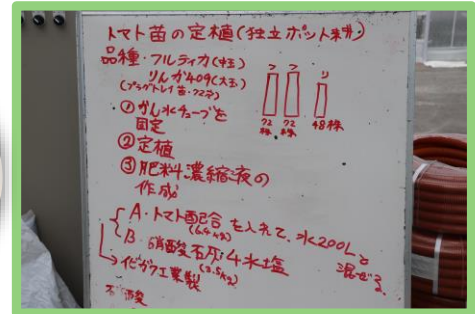 トマト苗の定植(独立ポット耕)
品種・フルティカ(中玉)
りんか409(大玉)
(プラグトレイ苗・72穴)
フ フ リ
72株 72株 48株
①かん水チューブを
固定
②定植
③肥料濃縮液の
作成
A・トマト配合を入れて、水200Lと
(6.4kg)
混ぜる。
B・硝酸石灰・4水塩
(3.5kg)
イビガワ工業製
硝酸